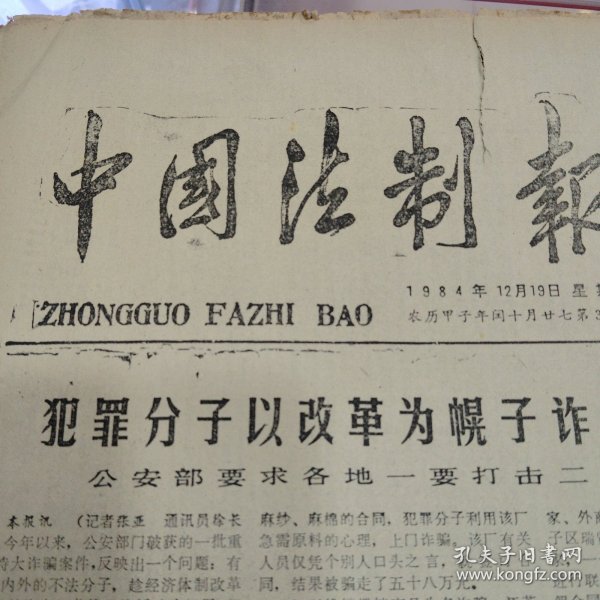 中国法制报
1984年12月19日 星
ZHONGGUO FAZHI BAO
农历甲子年闰十月廿七 第
犯罪分子以改革为幌子诈
公安部要求各地一要打击二
本报讯 (记者张亚 通讯员徐长
今年以来,公安部门破获的一批重
特大诈骗案件,反映出一个问题:有
内外的不法分子,趁经济体制改革
麻纱、麻棉的合同,犯罪分子利用该厂
急需原料的心理,上门诈骗。该厂有关
人员仅凭个别人口头之言,
同,结果被骗走了五十八万元。
家、外商
子区瑞
孔夫子旧书网
www.kongfz.com